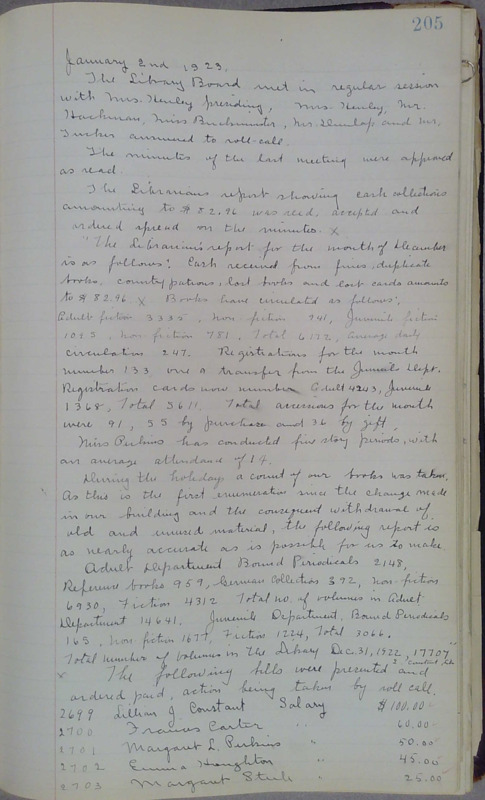 205
January 2nd 1923.
The Library Board met in regular session
with Mrs. Henley presiding, Mrs. Henley, Mr.
Hackman, Miss Buckminster, Mr. Dunlap and Mr.
Tucker answered to roll-call.
The minutes of the last meeting were approved
as read.
The Librarians report showing cash collections
amounting to $82.96 was read, accepted and
ordered spread on the minutes. x
"The Librarian's report for the month of December
is as follows: Cash received from fines, duplicate
books, country patrons, lost books and lost cards amounts
to $82.96. x Books have circulated as follows;
Adult fiction 3335, non fiction 941, Juvenile fiction
1095, non fiction 781, Total 6172, average daily
circulation 247. Registrations for the month
number 133, one a transfer from the Juvenile Dept.
Registration cards now number Adult 4243, Juvenile
1368, Total 5611. Total accessions for the month
were 91, 55 by purchase and 36 by gift.
Miss Perkins has conducted five story periods, with
an average attendance of 14.
During the holidays a count of our books was taken.
As this is the first enumeration since the change made
in our building and the consequent withdrawal of
old and unused material, the following report is
as nearly accurate as is possible for us to make
Adult Department Bound Periodicals 2148,
Reference books 959, German Collection 392, non-fiction
6930, Fiction 4312 Total no. of volumes in Adult
Department 14641. Juvenile Department, Bound Periodicals
165, non-fiction 1677, Fiction 1224, Total 3066.
Total number of volumes in the Library Dec. 31, 1922, 17707"
x The following bills were presented and
ordered paid, action being taken by roll call.
2699 Lillian J. Constant Salary $100.00
2700 Frances Carter " 60.00
2701 Margaret L. Perkins " 50.00
2702 Emma Houghton " 45.00
2703 Margaret Steele " 25.00